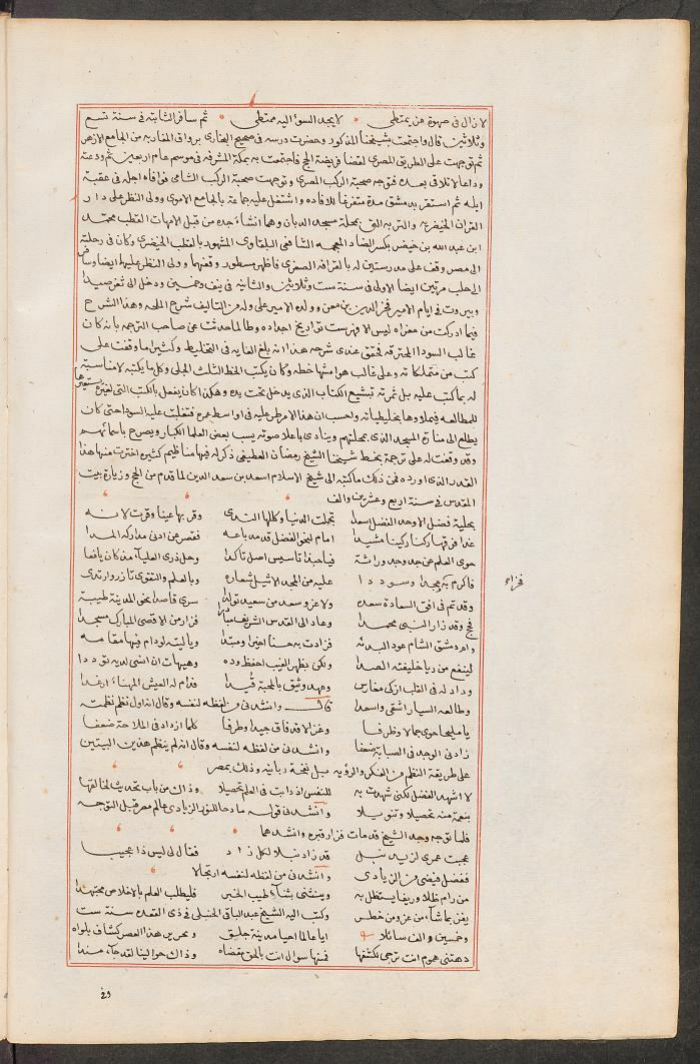 لا زال في صهوة عن يمتطي لا يجد السوء اليه ممتطى ثم سافر الثانية في سنة تسع
وثلاثين قال واجتمعت بشيخنا المذكور وحضرت درسه في صحيح البخاري برواق المغاربه من الجامع الازهر
ثم توجهت على الطريق المصري لقضا فريضة الحج فاجتمعت به بمكة المشرفه في موسم عام اربعين ثم ودعته
وداعا لا تلاق بعده فتوجه صحبة الركب المصري وتوجهت صحبة الركب الشامي فوافاه اجله في عقبة
ايله ثم استقر بدمشق مدة متفرغا للافاده واشتغل عليه جماعة بالجامع الاموي وولى النظر على دار
القران الخيضريه والتربه التي بمحلة مسجد الدبان وهما انشاء جده من قبل الامهات القطب محمد
ابن عبد الله بن خيضر بكسر الضاد المعجمه الشافعي البلقاوي المشهور بالقطب الخيضري وكان في رحلته
الى مصر وقف على مدرستين له بالقرافه الصغرى فاظهر سطور وقفهما وولى النظر عليهما ايضا وسافر
الى حلب مرتين ايضا الاولى في سنة ست وثلاثين والثانيه في نيف وخمسين ودخل الى ثغر صيدا
وبيروت في ايام الامير فخر الدين بن معن وولده الامير علي وله من التاليف شرح الملحه وهذا الشرح
فيما ادركت من مغزاه ليس الا فهرست تواريخ اجداده وطالما حدثت عن صاحب الترجمه بانه كان
غالب السودا المحترقه فحقق عندي شرحه هذا انه بلغ الغايه في التخليط وكثيرا ما وقفت على
كتب من متملكاته وعلى غالب هوامشها خطه وكان يكتب الخط الثلث الجلي وكل ما يكتبه لا مناسبة
له بما كتب عليه بل ثمرته تبشيع الكتاب الذي يدخل تحت يده وهكذا كان يفعل بالكتب التي يستعيرها لغيره
للمطالعه فيملاوها بتخليطياته واحسب ان هذا الامر طرا عليه في اواسط عمره فتغلبت عليه السودا حتى كان
يطلع الى منارة المسجد الذي بمحلتهم وينادي باعلا صوته يسب بعض العلما الكبار ويصرح باسمائهم
وقد وقفت له على ترجمة بخط شيخنا الشيخ رمضان العطيفي ذكر له فيها مناظيم كثيره اخترت منها هذا
القدر الذي اورده فمن ذلك ما كتبه الى شيخ الاسلام اسعد بن سعد الدين لما قدم من الحج وزيارة بيت
المقدس في سنة اربع وعشرين والف
بحلية فضل الاوحد المفضل سعدا تحلت الدنيا وكللها الندى وقر بها عينا وقرت لانه
غدا فرقها ركنا ركينا مشيدا امام لنحو الفضل قد مد باعه فقصر عن ادنى مداركه المدا
حوى العلم عن جد وجد وراثة فيا حبذا تاسيس اصل تاكدا وحل ذرى العلياء مذ كان يافعا
فاكرم بكم مجدا وسوددا عليه من المجد الاثيل شعاره وبالعلم والتقوى تازر وارتدى
وقد تم في افق السعادة سعده ولا غرو سعد من سعيد تولدا سرى قاصدا نحو المدينة طيبة
فحج وقد زار النبي محمدا وعاد الى القدس الشريف مبادرا فزار من الاقصى المبارك مسجدا
وام دمشق الشام عود البدئه فزادت به حسنا اخيرا ومبتدا ويا ليته لو دام فيها مقامه
لينفع من ريا خليقته الصدا ولكن بظهر الغيب احفظ وده وهيهات ان انسى لديه توددا
وداد له في القلب ازكى مغارس وعهد وثيق بالمحبة قيدا فدام له العيش المهناء ارغدا
وطالعه السيار اشقى واسعدا قال وانشدني من لفظه لنفسه وقال انه اول نظم نظمته
يا مليحا حوى جمالا وظرفا وغزالا قد فاق جيدا وطرفا كلما ازداد في الملاحة ضعفا
زادني الوجد في الصبابة ضعفا وانشدني من لفظه لنفسه وقال انه لم ينظم هذين البيتين
على طريقة النظم من الفكر والرؤيه بل نفحة ربانيه وذلك بمصر
لا اشهد الفضل لكني شهدت به للنفس اذ دابت في العلم تحصيلا وذاك من باب تحديث لخالقها
بنعمة منه تحصيلا وتنويلا وانشدني قوله مادحا للنور الزيادي عالم مصر قبل التوجه
فلما توجه وجد الشيخ قد مات فزار قبره وانشدهما
عجبت عمري لزيد نبل قد زاد نبلا لكل زاد فقال لي ليس ذا عجيبا
ففضل فيضي من الزيادي وانشدني من لفظه لنفسه ارتجالا
من رام ظلا وريفا يستظل به وينثني بثناء طيب الخبر فليطلب العلم بالاخلاص مجتهدا
يفز بما شاء من عز ومن خطر وكتب اليه الشيخ عبد الباقي الحنبلي في ذي القعده سنة ست
وخمسين والف سائلا ايا عالما احيا مدينة جلق ونحرير هذا العصر كشاف بلواه
دهتني هموم انت ترجى لكشفها فمنها سوال انت بالحق مقضاه وذاك حوالينا لقد جاء مسندا